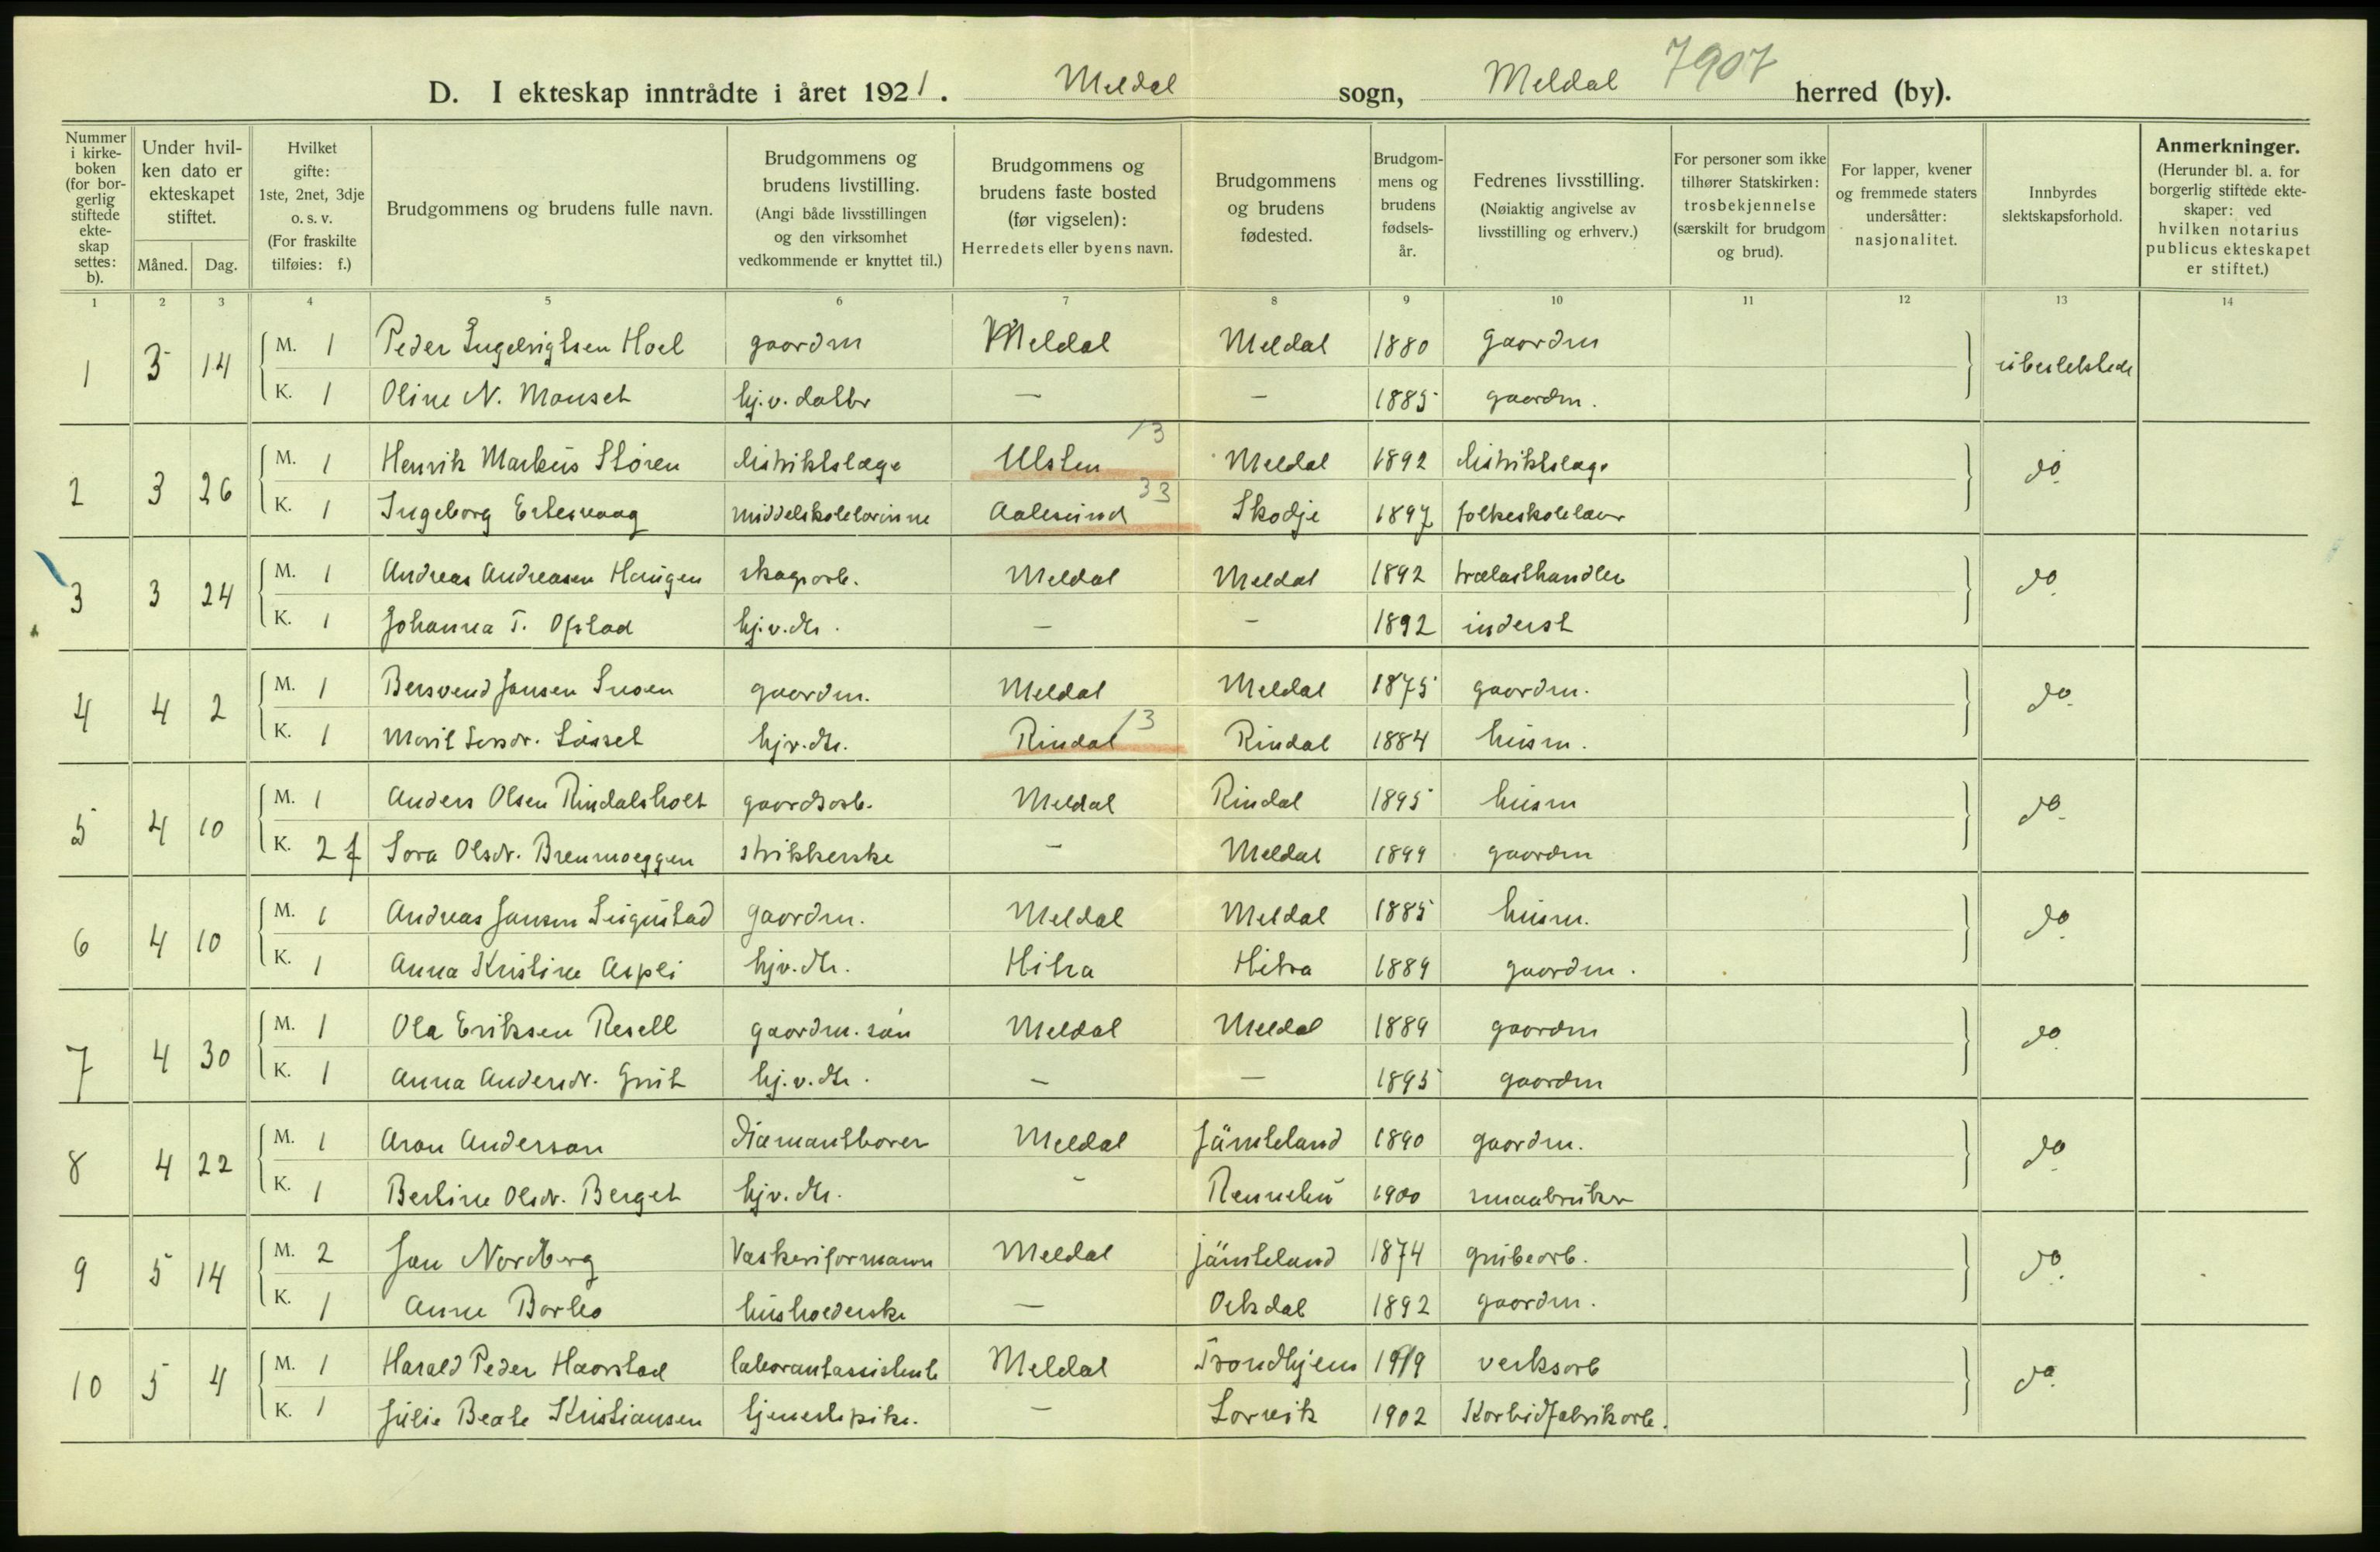 D. I ekteskap inntrådte i året 1921. Meldal sogn, Meldal 7907 herred (by).
Nummer i kirkeboken (for borgerlig stiftede ekteskap settes: b).
Under hvilken dato er ekteskapet stiftet.
Måned. Dag.
Hvilket gifte: 1ste, 2net, 3dje o. s. v. (For fraskilte tilføies: f.)
Brudgommens og brudens fulle navn.
Brudgommens og brudens livstilling. (Angi både livsstillingen og den virksomhet vedkommende er knyttet til.)
Brudgommens og brudens faste bosted (før vigselen): Herredets eller byens navn.
Brudgommens og brudens fødested.
Brudgommens og brudens fødsels-år.
Fedrenes livsstilling. (Nøiaktig angivelse av livsstilling og erhverv.)
For personer som ikke tilhører Statskirken: trosbekjennelse (særskilt for brudgom og brud).
For lapper, kvener og fremmede staters undersåtter: nasjonalitet.
Innbyrdes slektskapsforhold.
Anmerkninger. (Herunder bl. a. for borgerlig stiftede ekteskaper: ved hvilken notarius publicus ekteskapet er stiftet.)
1 2 3 4 5 6 7 8 9 10 11 12 13 14
1 3 14 M. 1 Peder Ingebrigtsen Hoel gaardm Meldal Meldal 1880 gaardm ubeslektede
K. 1 Oline N. Manset hj.v. datter — — 1885 gaardm.
13
2 3 26 M. 1 Henrik Markus Støren distriktslæge Ulsten Meldal 1892 distriktslæge do.
33
K. 1 Ingeborg Ertesvaag middelskolelærinne Aalesund Skodje 1897 folkeskolelærer
3 3 24 M. 1 Andreas Andreasen Haugen skogsarb. Meldal Meldal 1892 trælasthandler do.
K. 1 Johanna T. Opstad hj.v.dtr. — — 1892 inderst
4 4 2 M. 1 Bersvend Jansen gaardm. Meldal Meldal 1875 gaardm. do.
13
K. 1 Marit hjv.dtr. Rindal Rindal 1884 husm.
5 4 10 M. 1 Anders Olsen Rindalsholt gaardsarb. Meldal Rindal 1895 husm do.
K. 2 f Sora Olsdr. Brenmoeggen strikkerske — Meldal 1899 gaardm
6 4 10 M. 1 Andreas Jansen gaardm. Meldal Meldal 1885 husm. do.
K. 1 Anna Kristine Aspli hjv.dtr. Hitra Hitra 1889 gaardm.
7 4 30 M. 1 Ola Eriksen Resell gaardm. søn Meldal Meldal 1889 gaardm do.
K. 1 Anna Andersdr. Grut hj.v.dtr. — — 1895 gaardm
8 4 22 M. 1 Aron Anderson Diamantborer Meldal Jämteland 1890 gaardm. do.
K. 1 Bertine Olsdr. Berget hjv.dtr. — Rennebu 1900 smaabruker
9 5 14 M. 2 Jan Nordberg Vaskeriformann Meldal jämteland 1874 grubearb. do.
K. 1 Anne Barbo husholderske — Orkdal 1892 gaardm.
10 5 4 M. 1 Harald Peder Haarstad laborantassistent Meldal Trondhjem verksarb do.
K. 1 Julie Beate Kristiansen tjenestepike. — Larvik 1902 Karbidfabrikarb.